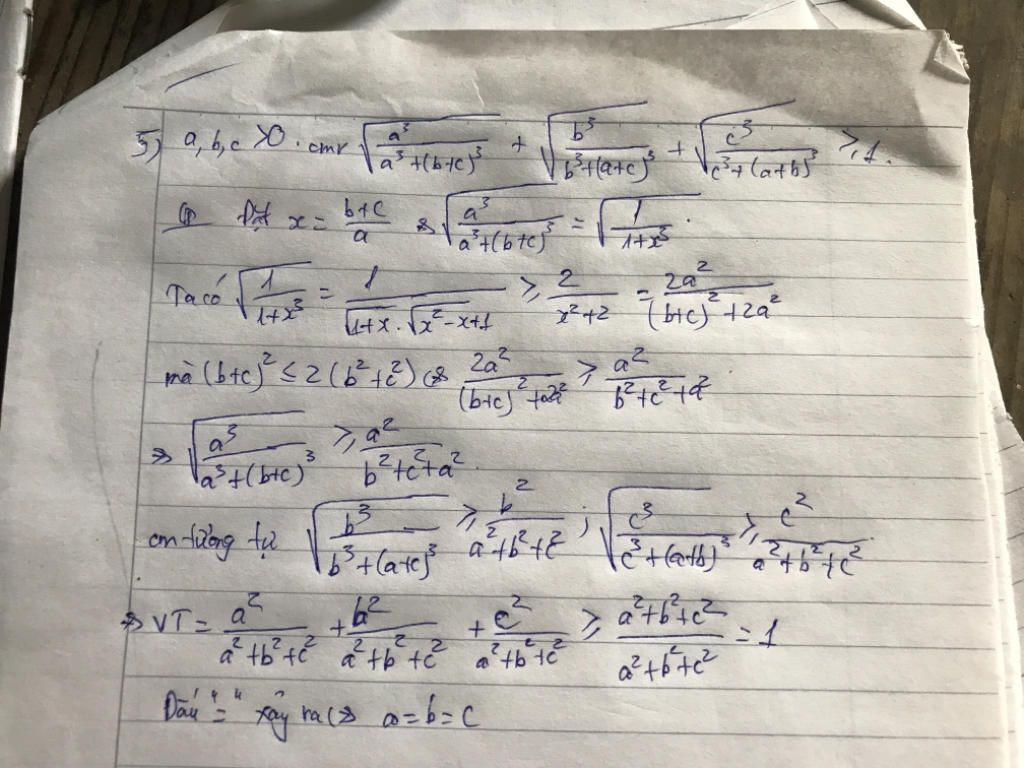 5) a, b, c >0. cmr √(a³/(a³+(b+c)³)) + √(b³/(b³+(a+c)³)) + √(c³/(c³+(a+b)³)) ≥ 1.
Đặt x = (b+c)/a ⇒ √(a³/(a³+(b+c)³)) = √(1/(1+x³)).
Ta có √(1/(1+x³)) = 1/(√(1+x) . √(x²-x+1)) ≥ 2/(x²+2) = 2a²/((b+c)²+2a²)
mà (b+c)² ≤ 2(b²+c²) ⇔ 2a²/((b+c)²+2a²) ≥ a²/(b²+c²+a²)
⇒ √(a³/(a³+(b+c)³)) ≥ a²/(b²+c²+a²).
cm tương tự √(b³/(b³+(a+c)³)) ≥ b²/(a²+b²+c²) ; √(c³/(c³+(a+b)³)) ≥ c²/(a²+b²+c²).
⇒ VT = a²/(a²+b²+c²) + b²/(a²+b²+c²) + c²/(a²+b²+c²) ≥ (a²+b²+c²)/(a²+b²+c²) = 1
Dấu "=" xảy ra ⇔ a=b=c